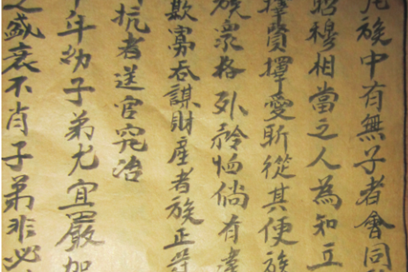 凡族中有無子者會同
昭穆相當之人為知立
擇賢擇愛听從其便族
族眾格外矜恤倘有違
欺寡吞謀財產者族正等
抗者送官究治
年幼子弟尤宜嚴加
之盛衰不肖子弟非必